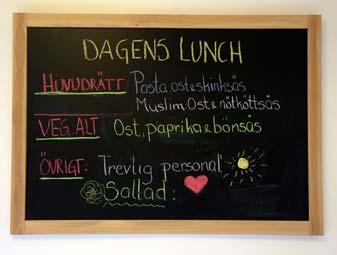 DAGENS LUNCH
HUVUDRÄTT Pasta ost&skinksås
Muslim.Ost & nötköttsås
VEG.ALT Ost, paprika & bönsås
ÖVRIGT: Trevlig personal
Sallad: